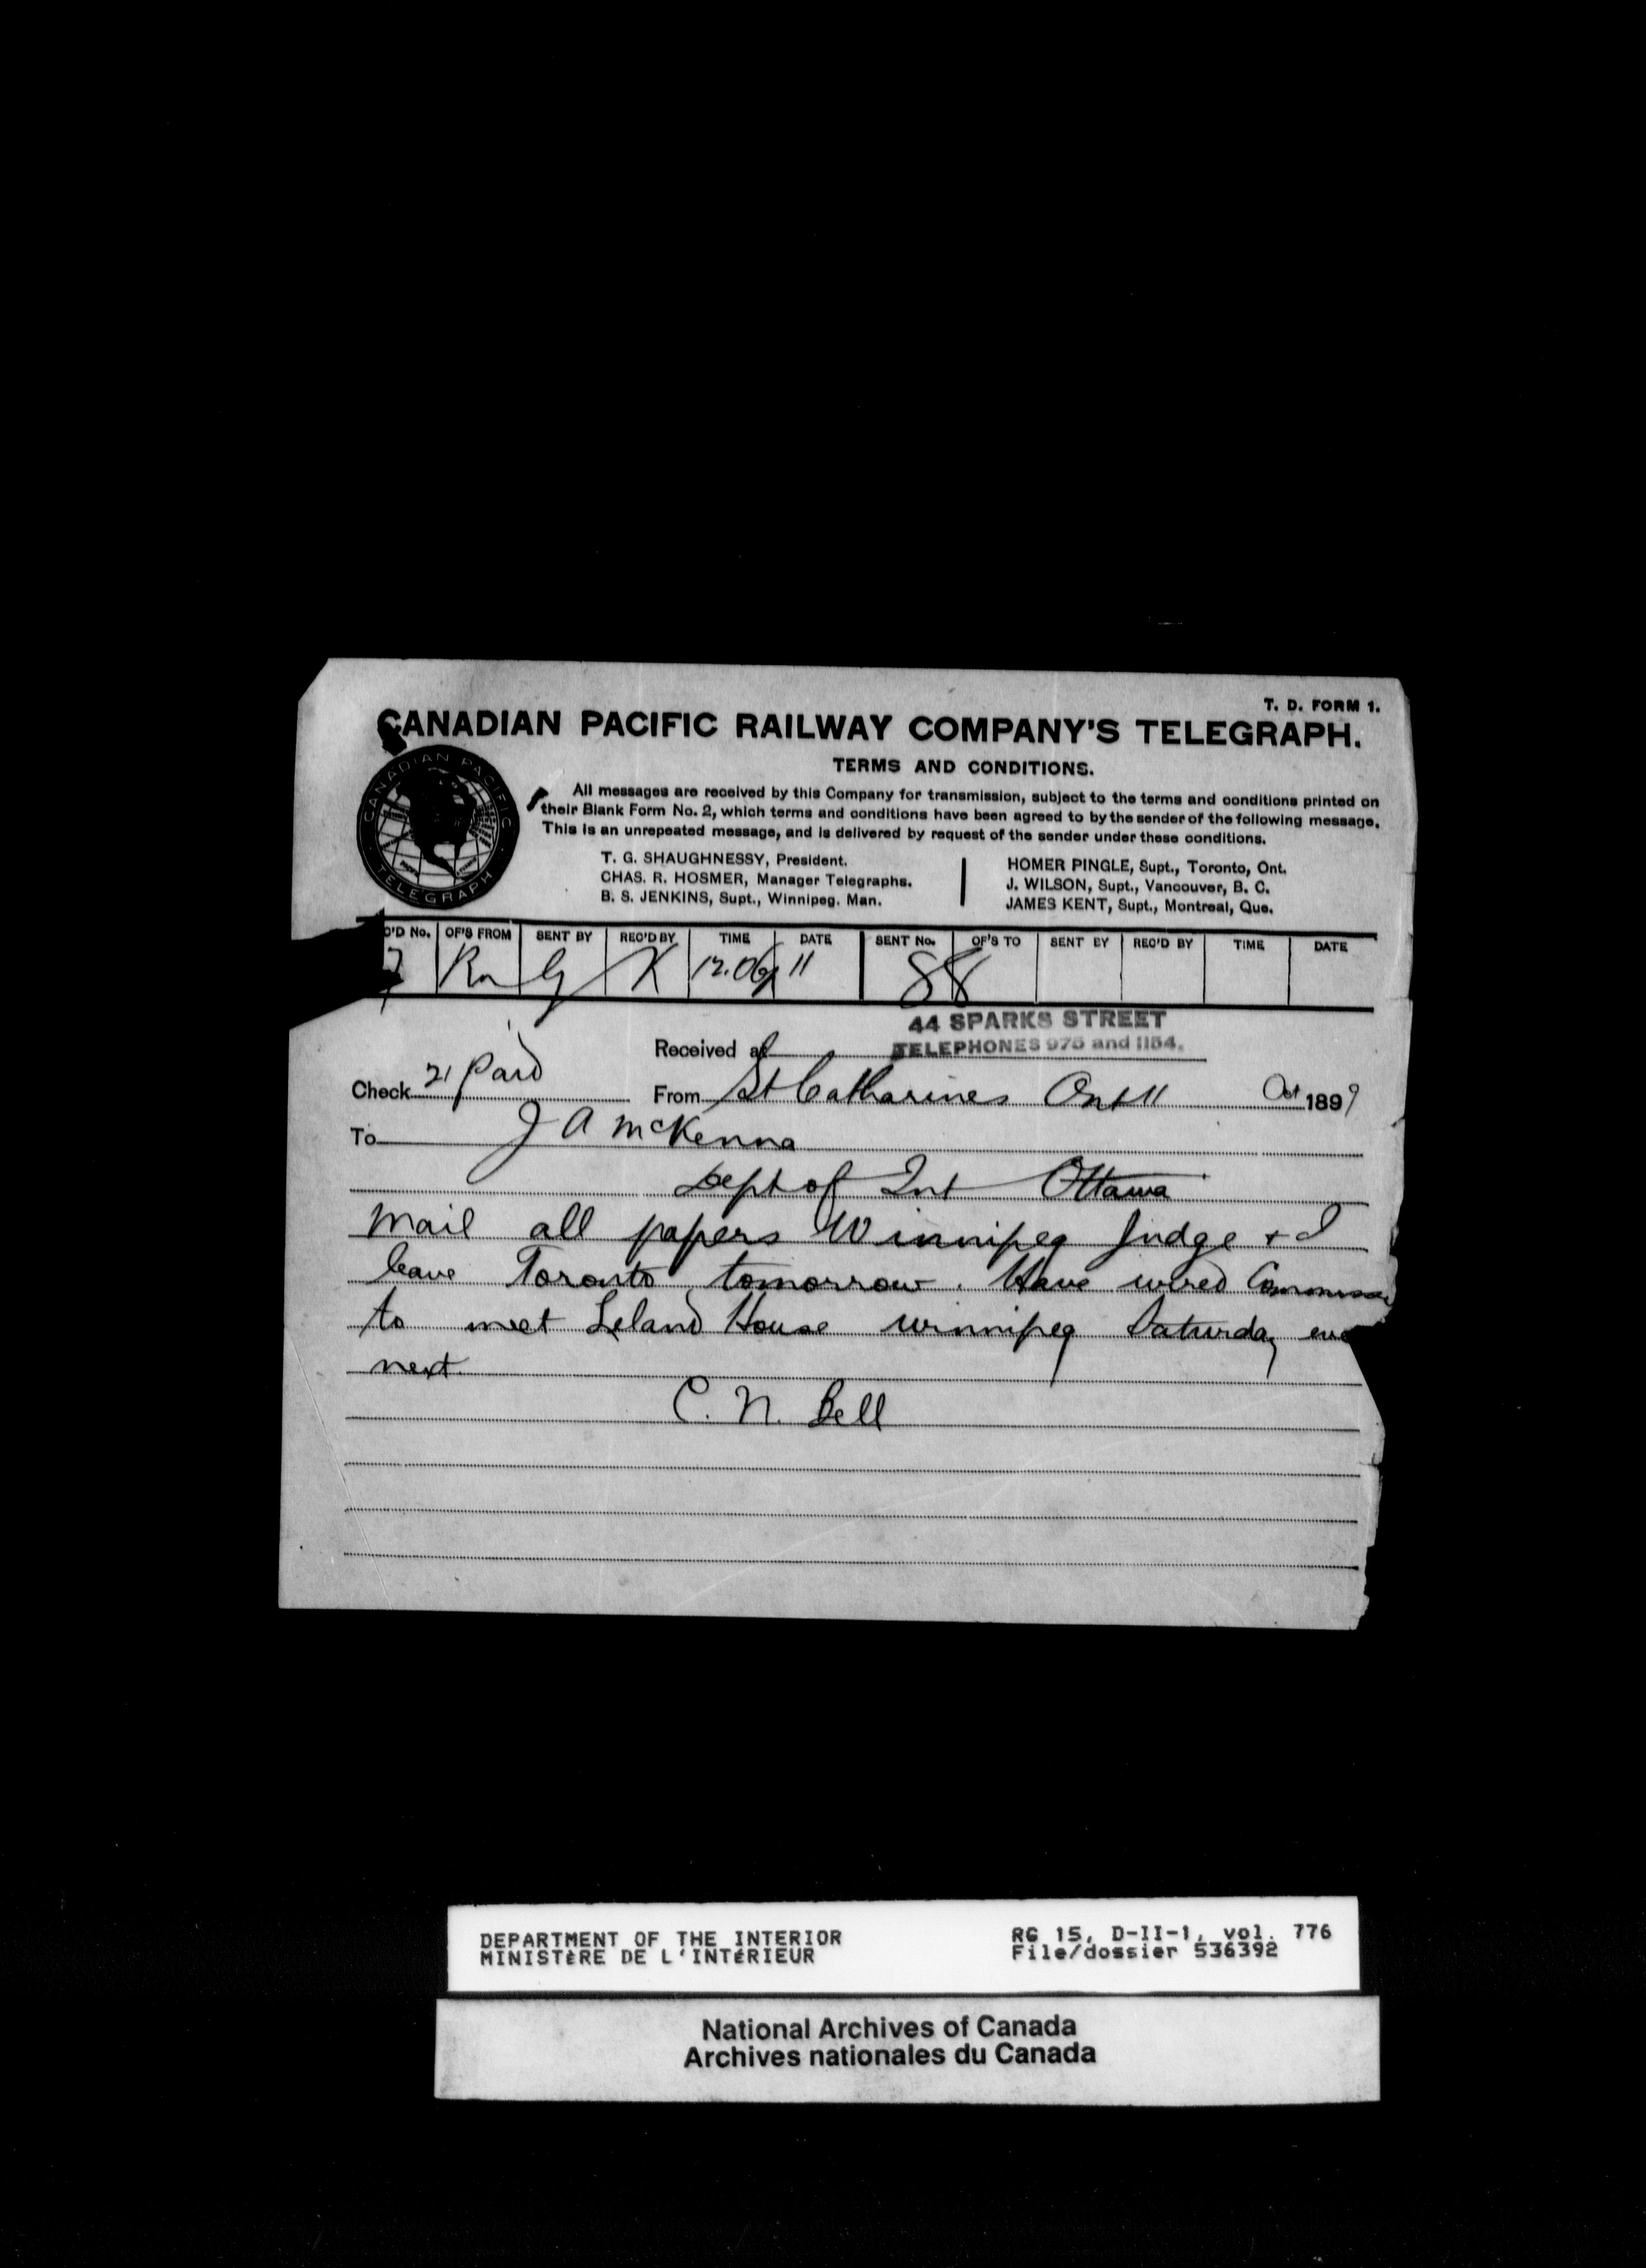 T. D. FORM 1.
CANADIAN PACIFIC RAILWAY COMPANY'S TELEGRAPH.
TERMS AND CONDITIONS.
All messages are received by this Company for transmission, subject to the terms and conditions printed on
their Blank Form No. 2, which terms and conditions have been agreed to by the sender of the following message.
This is an unrepeated message, and is delivered by request of the sender under these conditions.
CANADIAN PACIFIC
TELEGRAPH
T. G. SHAUGHNESSY, President.
CHAS. R. HOSMER, Manager Telegraphs.
B. S. JENKINS, Supt., Winnipeg. Man.
HOMER PINGLE, Supt., Toronto, Ont.
J. WILSON, Supt., Vancouver, B. C.
JAMES KENT, Supt., Montreal, Que.
C'D No. OF'S FROM SENT BY REC'D BY TIME DATE SENT No. OF'S TO SENT BY REC'D BY TIME DATE
X 12.06 11 88
44 SPARKS STREET
Received at TELEPHONES 975 and 1154.
Check 21 Paid From St Catharines Ont 11 Oct 1899
To J A McKenna
Dept of Int Ottawa
Mail all papers Winnipeg Judge + I
leave Toronto tomorrow. Have wired
to meet Leland House Winnipeg Saturday
next.
C. N. Bell
DEPARTMENT OF THE INTERIOR
MINISTÈRE DE L'INTÉRIEUR
RG 15, D-II-1, vol. 776
File/dossier 536392
National Archives of Canada
Archives nationales du Canada